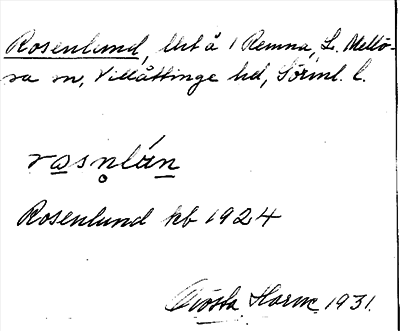 Rosenlund, lht å 1 Remna, L. Mellö-
sa sn, Villåttinge hd, Sörml. l.
rasnlán
Rosenlund kb 1924
Gösta Harm. 1931.